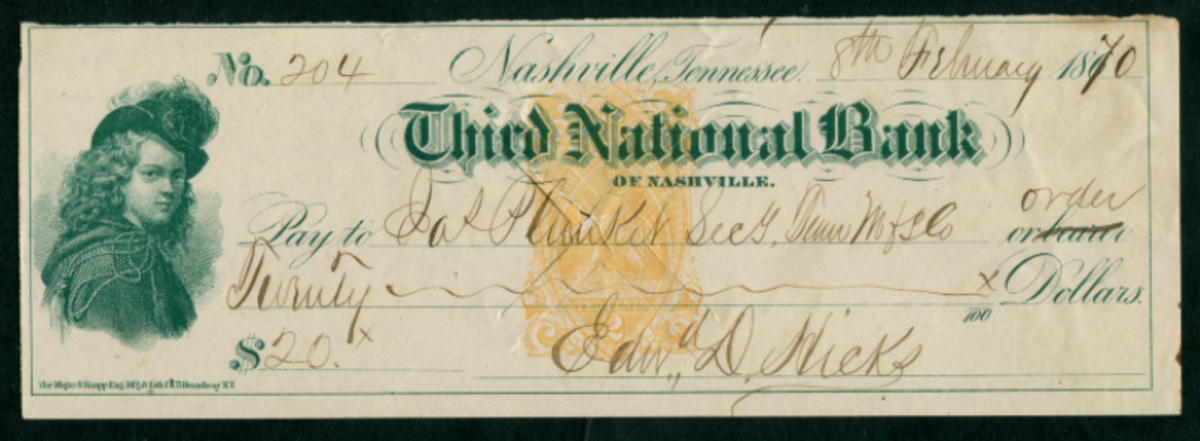 No. 204 Nashville, Tennessee. 8th February 1870
Third National Bank
OF NASHVILLE.
order
Pay to Jas Plunket Secy, Tenn M Co or bearer
Twenty x/100 Dollars.
$20.x
Edwd D. Hicks
The Major & Knapp Eng. Mfg & Lith Co. 71 Broadway N.Y.